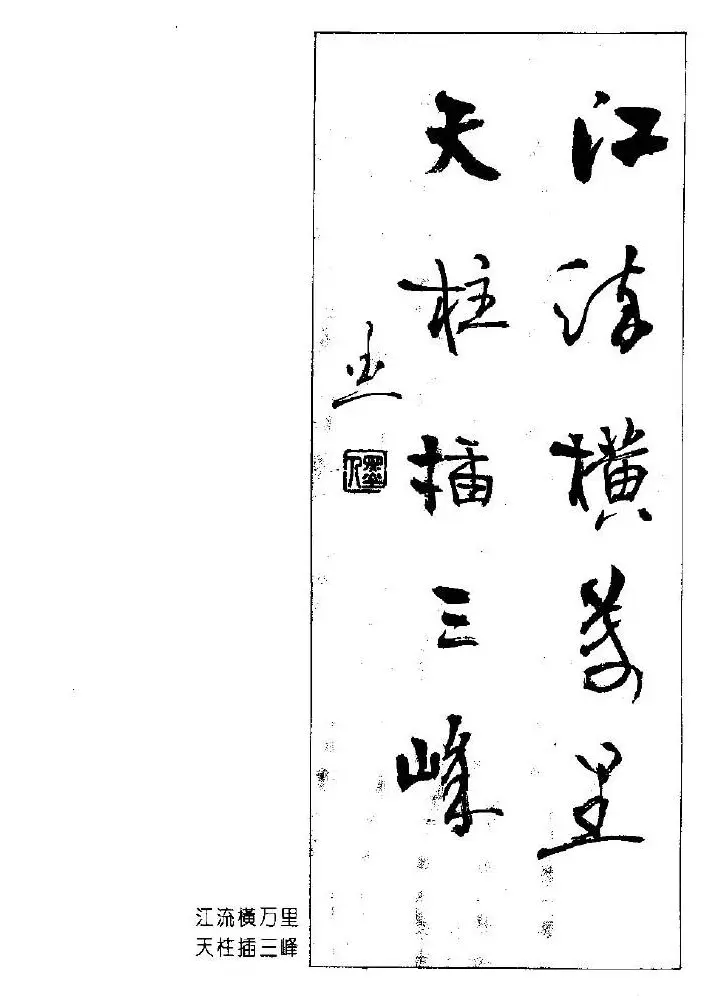 江流横萬里
天柱插三峰
江流橫万里
天柱插三峰